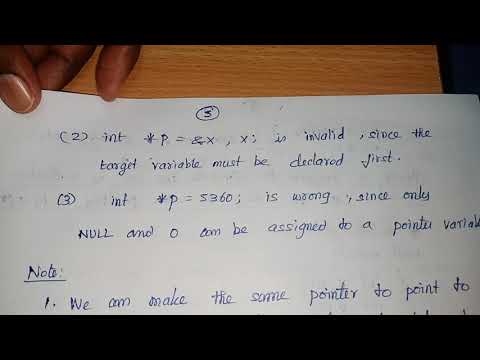 3
(2) int *p = &x, x; is invalid, since the
target variable must be declared first.
(3) int *p = 5360; is wrong, since only
NULL and 0 can be assigned to a pointer variable
Note:
1. We can make the same pointer to point to